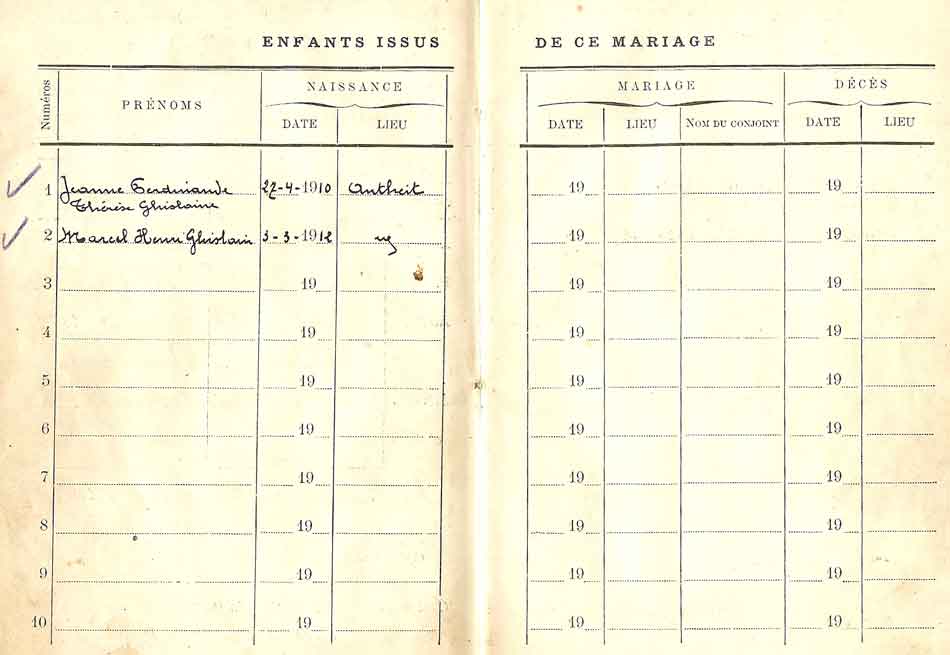 ENFANTS ISSUS DE CE MARIAGE
Numéros PRÉNOMS NAISSANCE MARIAGE DÉCÈS
DATE LIEU DATE LIEU NOM DU CONJOINT DATE LIEU
1 Jeanne Ferdinande 22-4-1910 Antheit 19 19
Thérèse Ghislaine
2 Marcel Henri Ghislain 3-3-1912 19 19
3 19 19 19
4 19 19 19
5 19 19 19
6 19 19 19
7 19 19 19
8 19 19 19
9 19 19 19
10 19 19 19